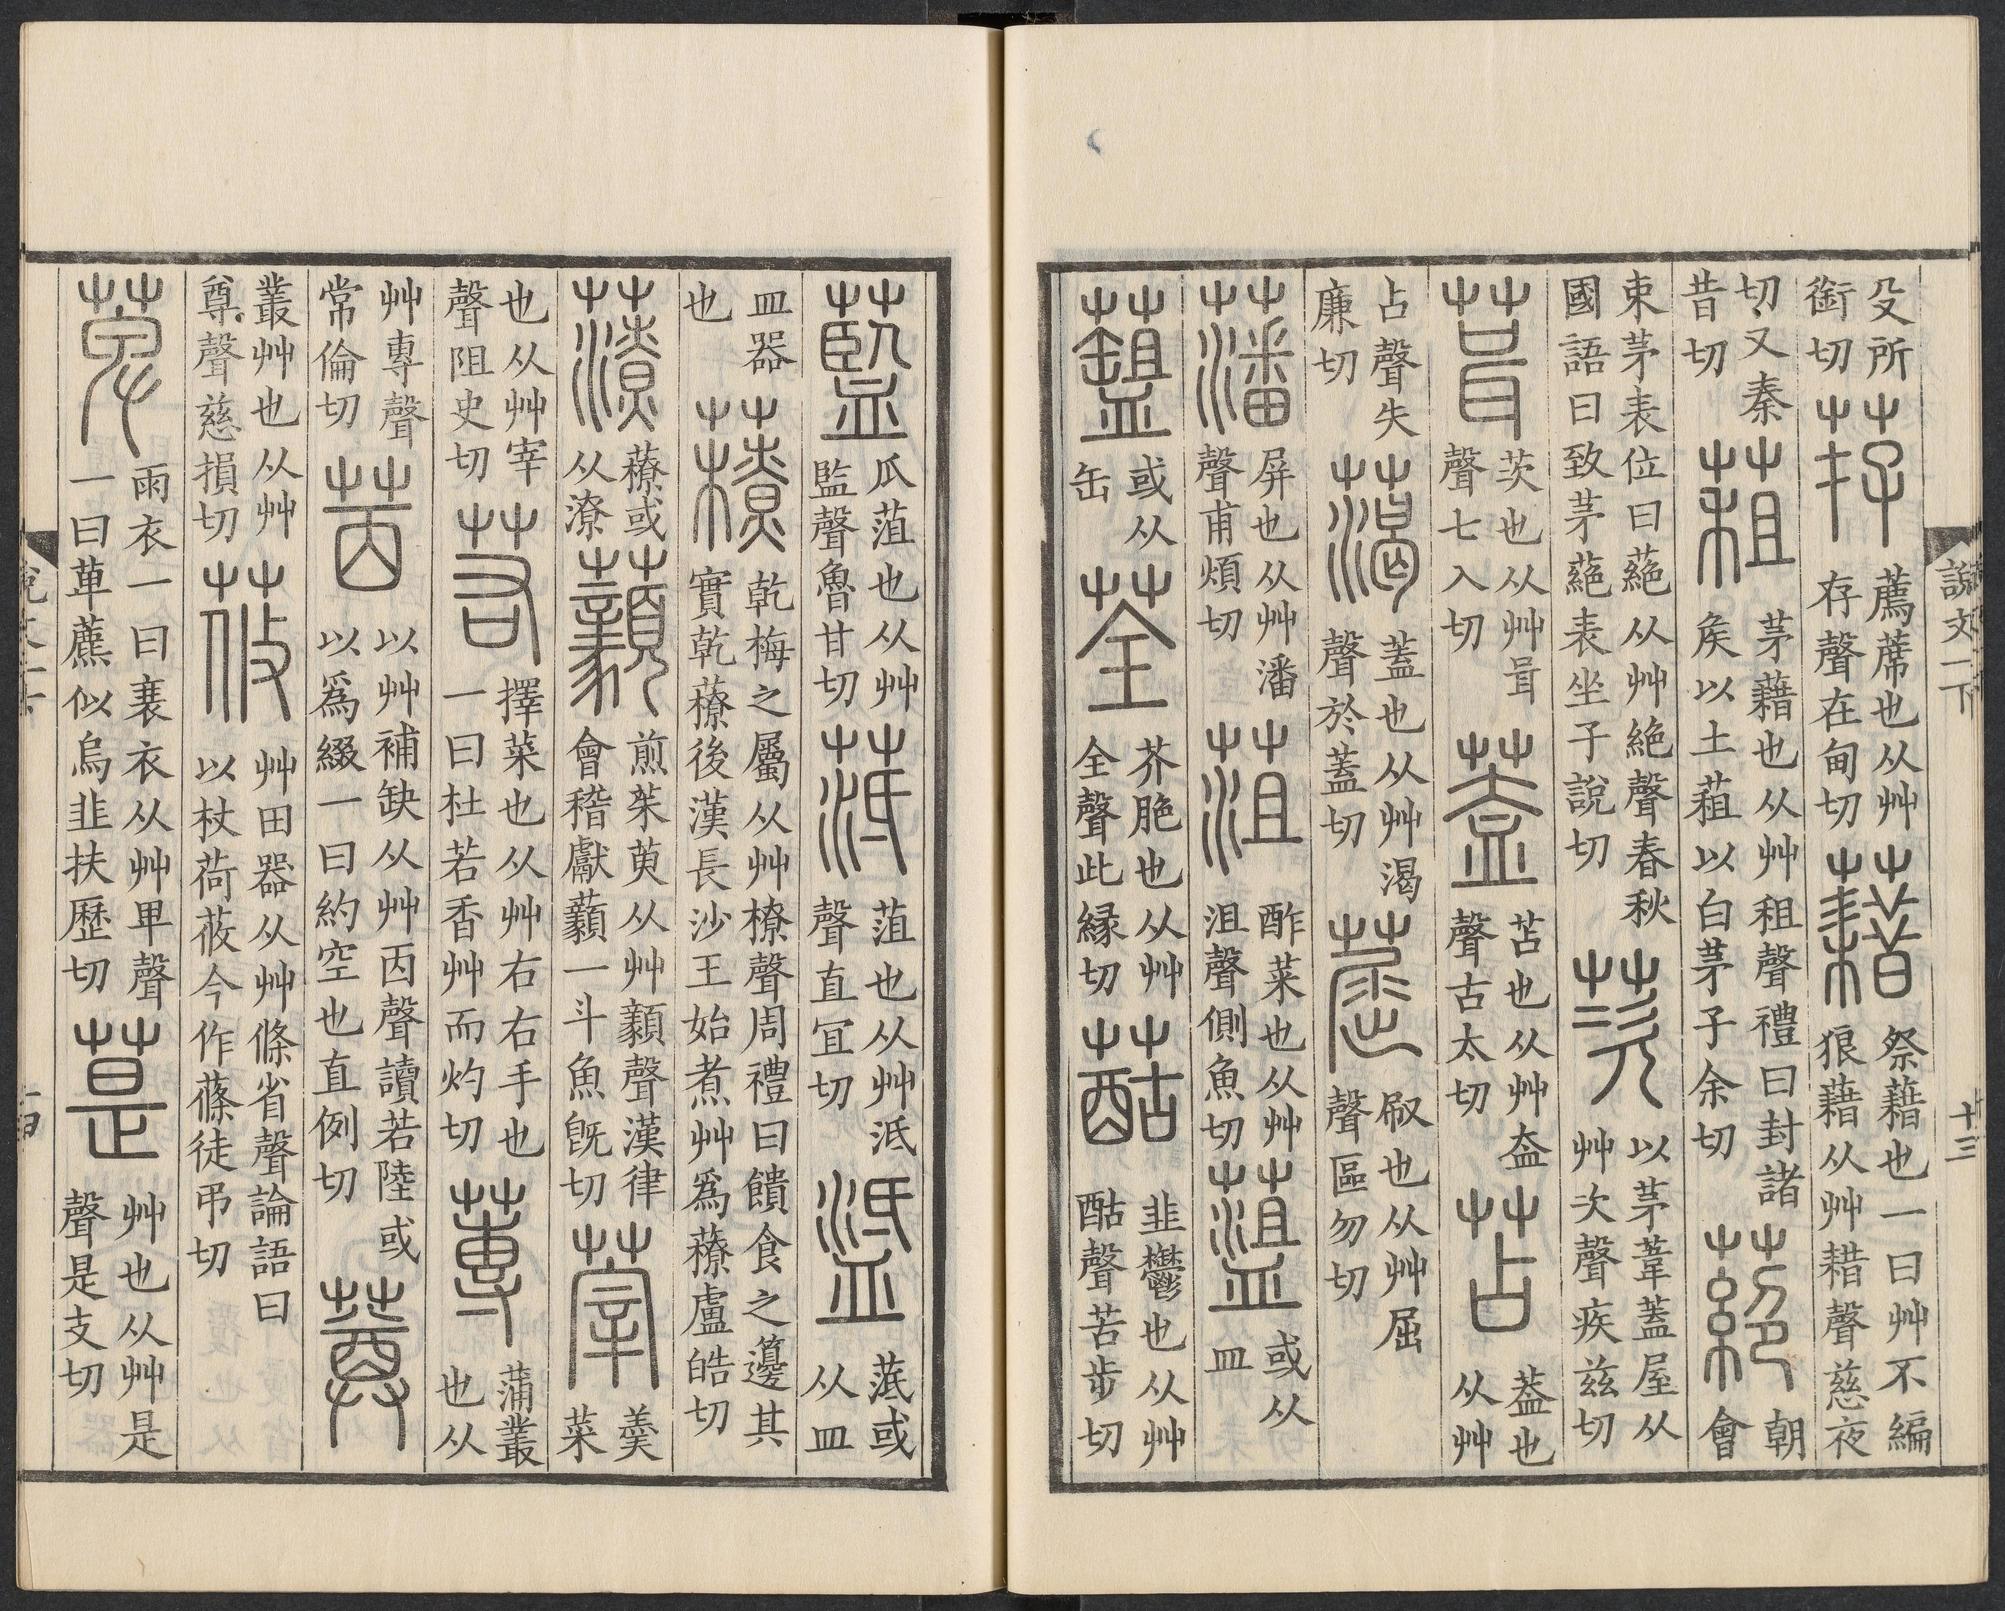 說文一下
十三
殳所銜切荐薦蓆也从艸存聲在甸切藉祭藉也一曰艸不編狼藉从艸耤聲慈夜
切又秦昔切蒩茅藉也从艸租聲禮曰封諸矦以土蒩以白茅子余切蕝朝會
束茅表位曰蕝从艸絕聲春秋國語曰致茅蕝表坐子說切茨以茅葦蓋屋从艸次聲疾兹切
葺茨也从艸咠聲七入切蓋苫也从艸盇聲古太切苫蓋也从艸
占聲失廉切蓋也从艸渴聲於蓋切䓛㕞也从艸屈聲區勿切
藩屏也从艸潘聲甫煩切菹酢菜也从艸沮聲側魚切或从皿
或从缶荃芥脃也从艸全聲此緣切韭鬱也从艸酤聲苦步切
瓜菹也从艸監聲魯甘切菹也从艸泜聲直宜切或从皿
皿器也䕩乾梅之屬从艸橑聲周禮曰饋食之籩其實乾䕩後漢長沙王始煮艸爲䕩盧皓切
䕩或从潦藙煎茱萸从艸㲃聲漢律會稽獻藙一斗魚旣切䔂羮菜
也从艸宰聲阻史切若擇菜也从艸右右手也一曰杜若香艸而灼切蓴蒲叢也从
艸專聲常倫切茵以艸補缺从艸㐁聲讀若陸或以爲綴一曰約空也直例切蕁
叢艸也从艸尊聲慈損切莜艸田器从艸條省聲論語曰以杖荷莜今作蓧徒弔切
萆雨衣一曰衰衣从艸𤰞聲一曰萆藨似烏韭扶歷切莡艸也从艸是聲是支切